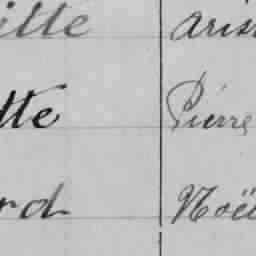 itte Aris
tte Pierre
rd Noë